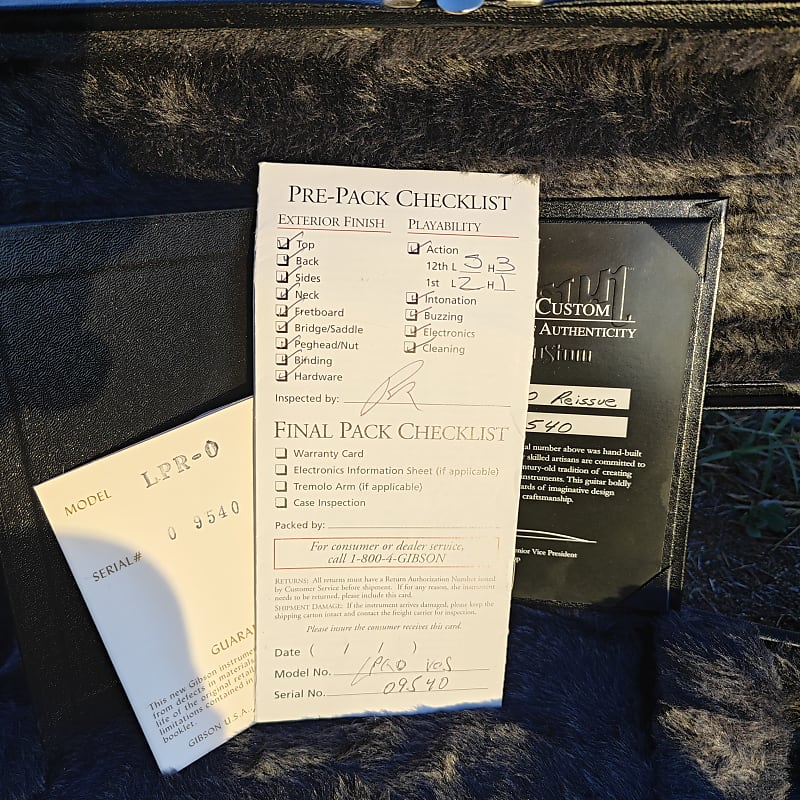 PRE-PACK CHECKLIST
EXTERIOR FINISH
Top
Back
Sides
Neck
Fretboard
Bridge/Saddle
Peghead/Nut
Binding
Hardware
PLAYABILITY
Action
12th L 5 H 3
1st L 2 H 1
Intonation
Buzzing
Electronics
Cleaning
Inspected by:
FINAL PACK CHECKLIST
Warranty Card
Electronics Information Sheet (if applicable)
Tremolo Arm (if applicable)
Case Inspection
Packed by:
For consumer or dealer service,
call 1-800-4-GIBSON
RETURNS: All returns must have a Return Authorization Number issued
by Customer Service before shipment. If for any reason, the instrument
needs to be returned, please include this card.
SHIPMENT DAMAGE: If the instrument arrives damaged, please keep the
shipping carton intact and contact the freight carrier for inspection.
Please insure the consumer receives this card.
Date ( / / )
Model No. LPR0 VOS
Serial No. 09540
MODEL LPR-0
SERIAL# 0 9540
GUARAN
This new Gibson instrume
from defects in materials
life of the original retail
limitations contained in
booklet.
GIBSON U.S.A.
CUSTOM
AUTHENTICITY
ustom
0 Reissue
540
al number above was hand-built
skilled artisans are committed to
ntury-old tradition of creating
instruments. This guitar boldly
ards of imaginative design
craftsmanship.
enior Vice President